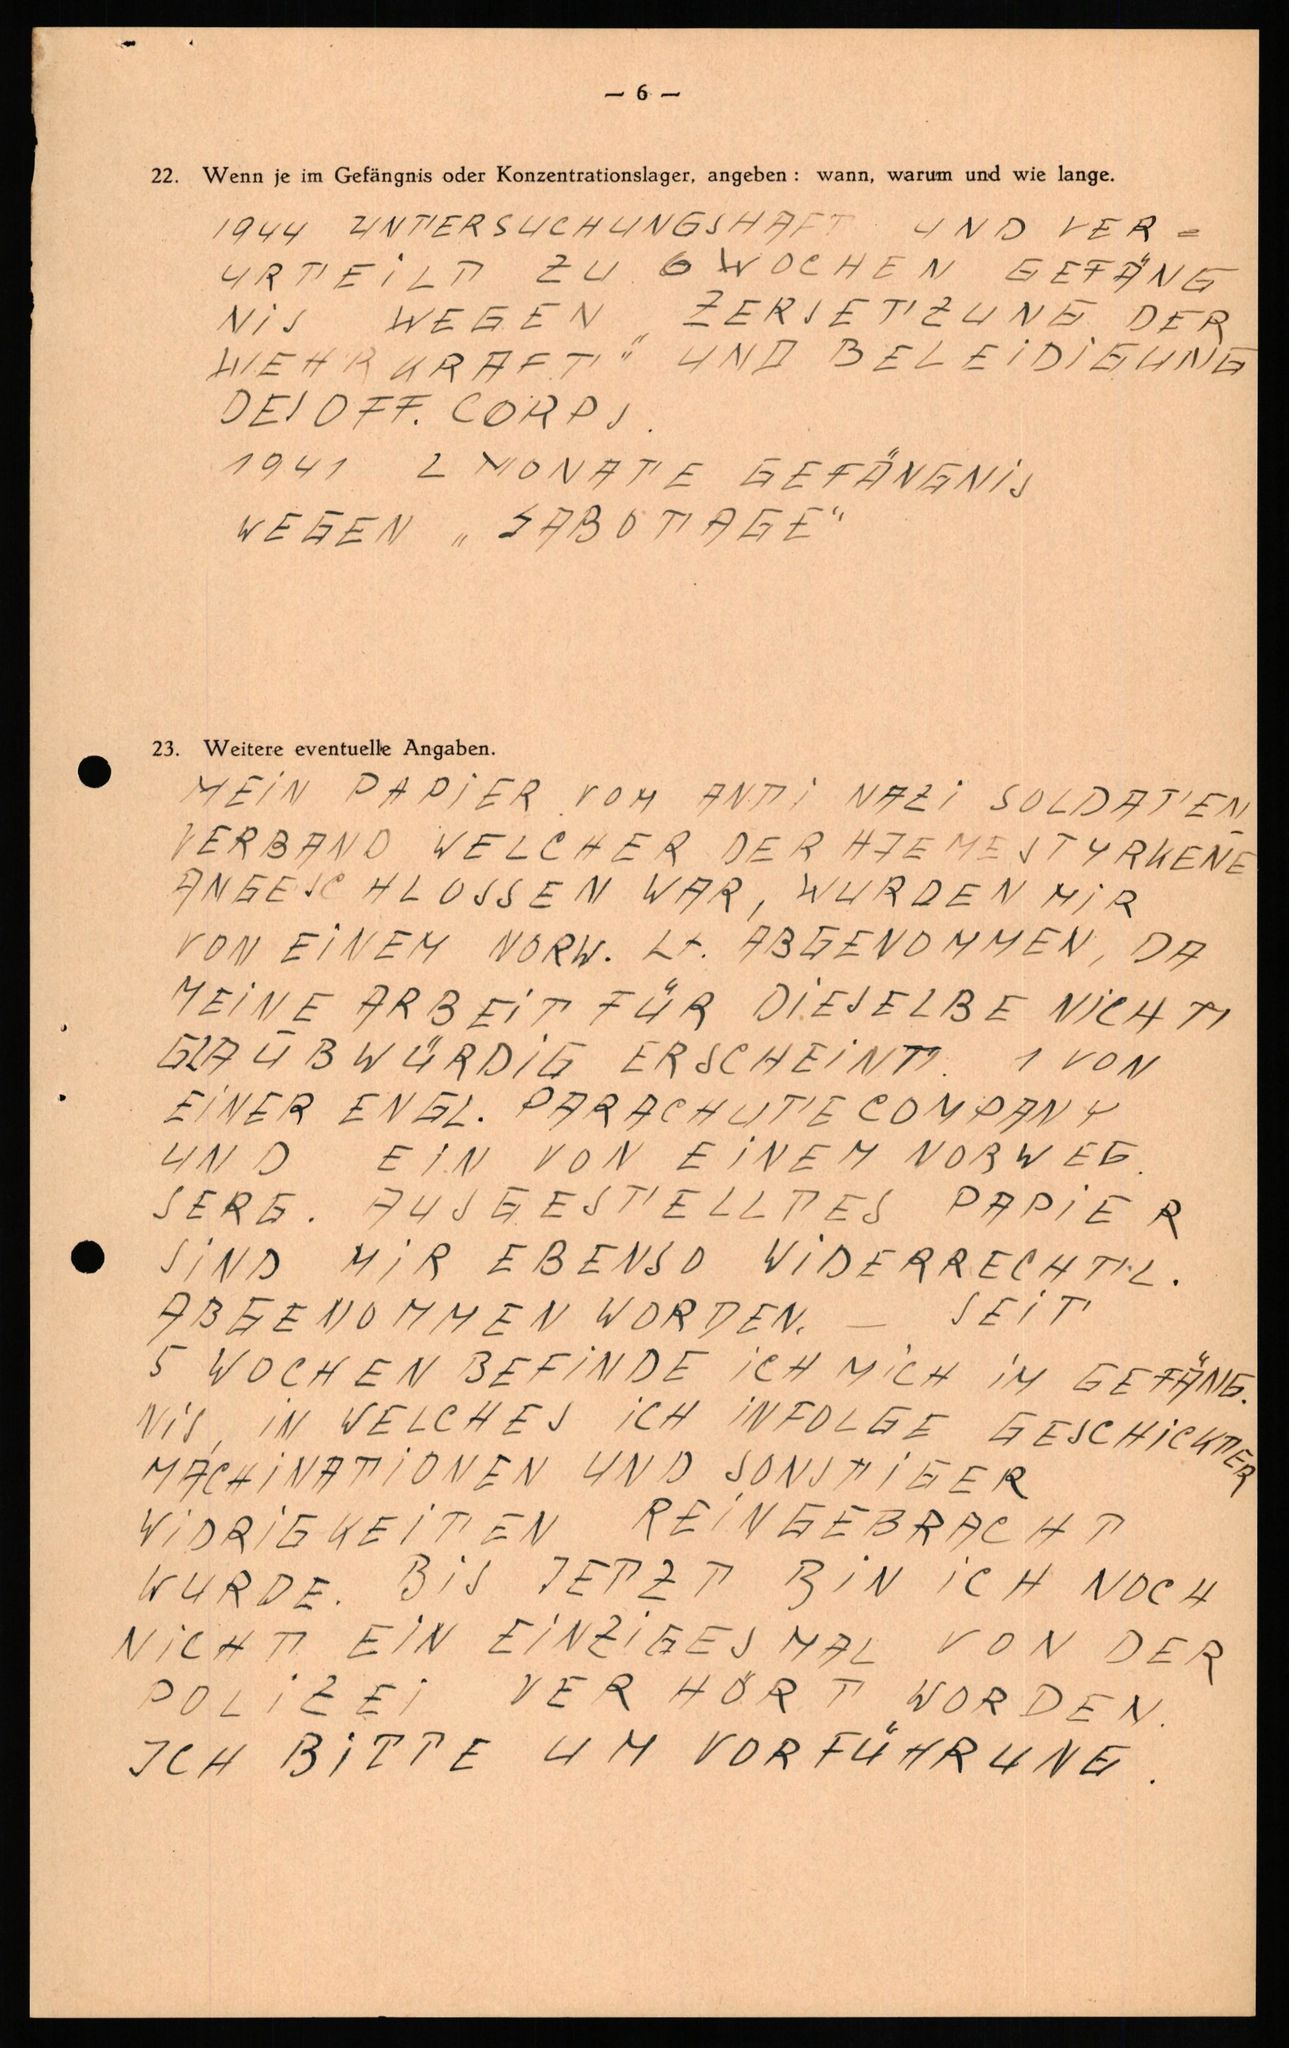 — 6 —
22. Wenn je im Gefängnis oder Konzentrationslager, angeben: wann, warum und wie lange.
1944 UNTERSUCHUNGSHAFT UND VER=
URTEILT ZU 6 WOCHEN GEFÄNG
NIS WEGEN „ZERSETZUNG DER
WEHRKRAFT" UND BELEIDIGUNG
DES OFF. CORPS.
1941 2 MONATE GEFÄNGNIS
WEGEN „SABOTAGE"
23. Weitere eventuelle Angaben.
MEIN PAPIER VOM ANTI NAZI SOLDATEN
VERBAND WELCHER DER HJEMESTYRKENE
ANGESCHLOSSEN WAR, WURDEN MIR
VON EINEM NORW. Lt. ABGENOMMEN, DA
MEINE ARBEIT FÜR DIESELBE NICHT
GLAUBWÜRDIG ERSCHEINT. 1 VON
EINER ENGL. PARACHUTECOMPANY
UND EIN VON EINEM NORWEG.
SERG. AUSGESTELLTES PAPIER
SIND MIR EBENSO WIDERRECHTL.
ABGENOMMEN WORDEN. — SEIT
5 WOCHEN BEFINDE ICH MICH IM GEFÄNG.
NIS, IN WELCHES ICH INFOLGE GESCHICKTER
MACHINATIONEN UND SONSTIGER
WIDRIGKEITEN REINGEBRACHT
WURDE. BIS JETZT BIN ICH NOCH
NICHT EIN EINZIGES MAL VON DER
POLIZEI VERHÖRT WORDEN.
ICH BITTE UM VORFÜHRUNG.